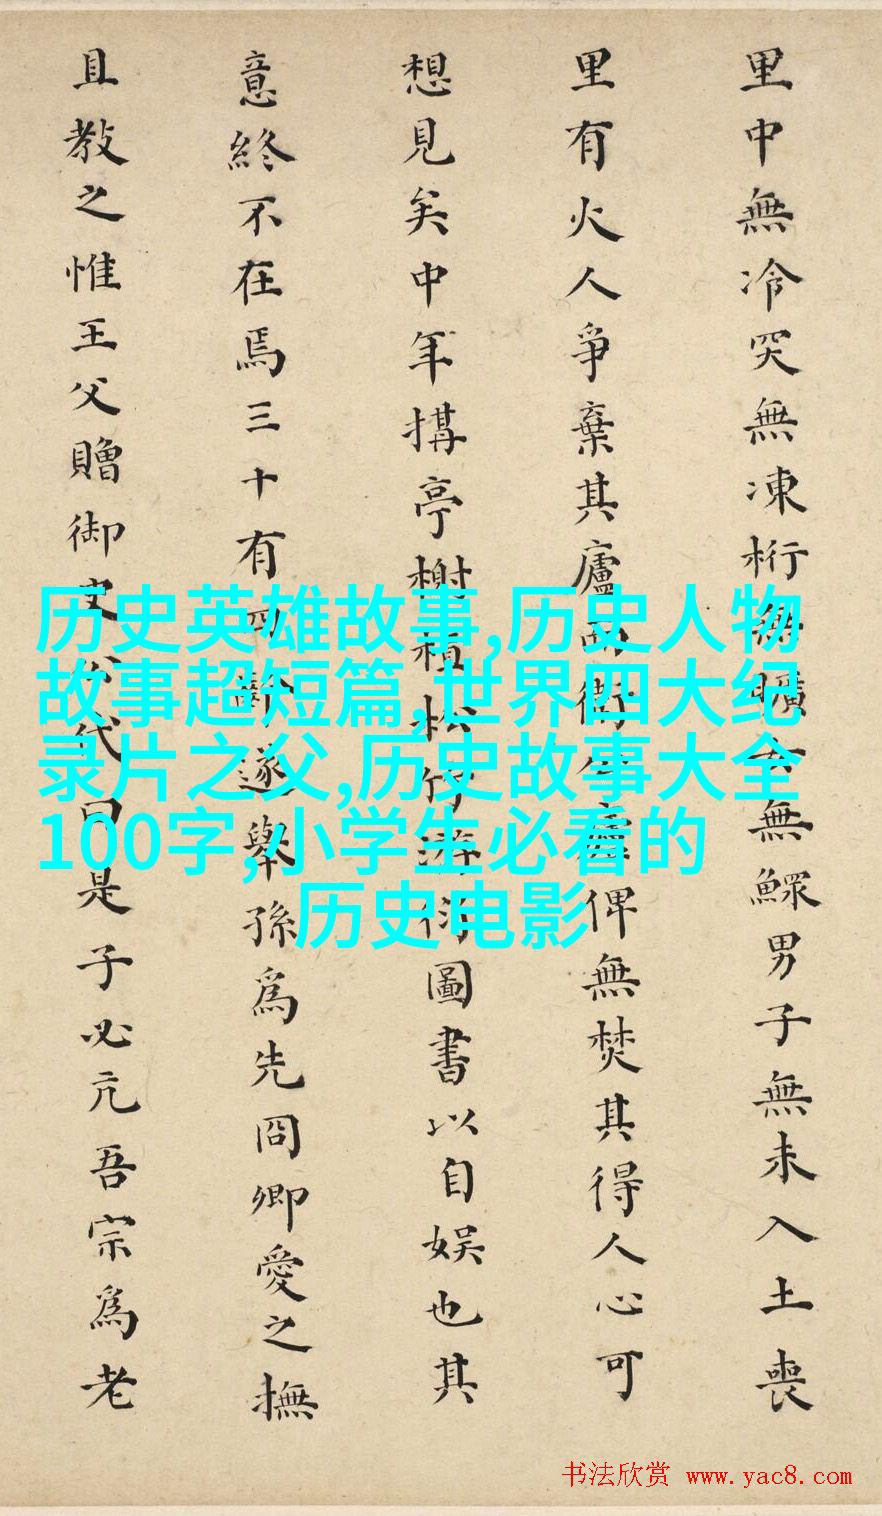 里中無冷突無凍桁無曠女無鰥男子無未入土喪
里有火人爭棄其廬而衛令廬俾無焚其得人心可
想見矣中年搆亭榭植松竹游衍圖書以自娛也其
意終不在焉三十有四歲遂舉孫爲先冏卿愛之撫
且教之惟王父贈御史公代曰是子必亢吾宗爲老
历史英雄故事,历史人物
故事超短篇,世界四大纪
录片之父,历史故事大全
100字,小学生必看的
历史电影
书法欣赏 www.yac8.com